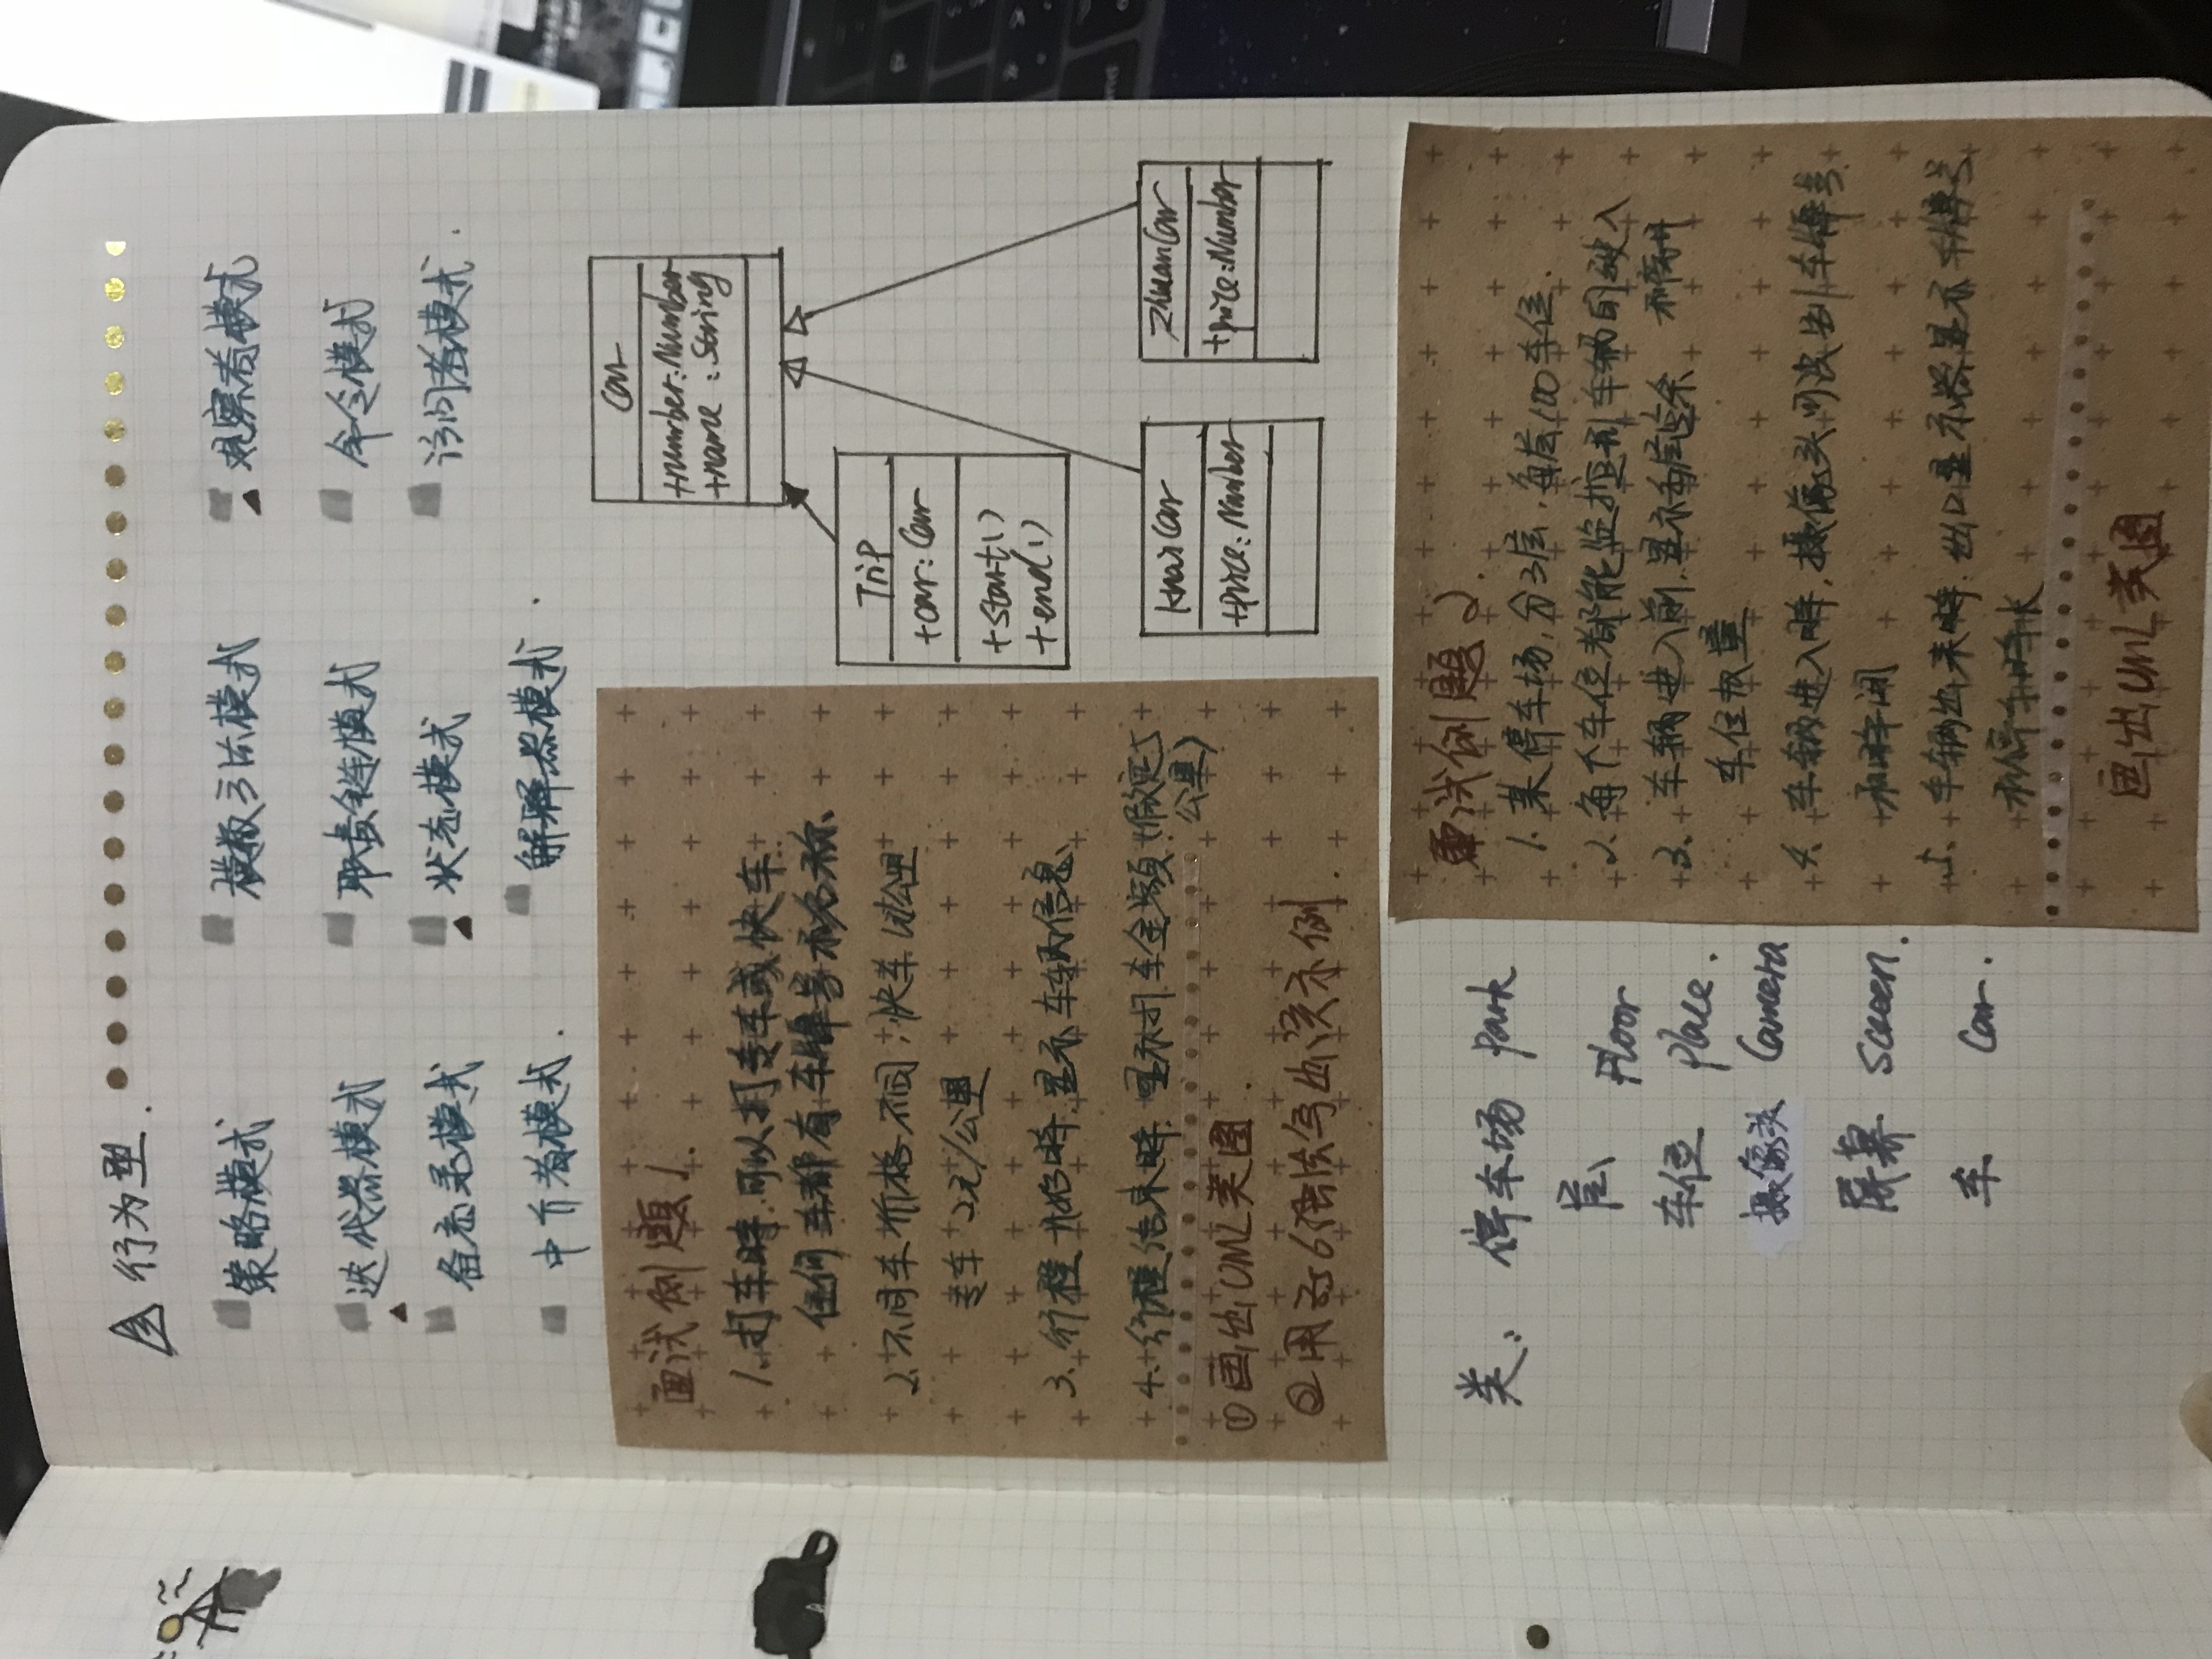 行为型.
策略模式 模板方法模式 观察者模式
迭代器模式 职责链模式 命令模式
备忘录模式 状态模式 访问者模式.
中介者模式. 解释器模式.
面试例题1.
1.打车时,可以打专车或快车.
任何车都有车牌号和名称、
2.不同车价格不同,快车1元/公里
专车2元/公里
3.行程开始时,显示车辆信息
4.行程结束时,显示打车金额(假定5
公里)
①画出UML类图.
②用ES6语法写出该示例.
Car
+number:Number
+name:String
Trip
+car:Car
+start()
+end()
KuaiCar
+price:Number
ZhuanCar
+price:Number
类: 停车场 park
层 Floor
车位 place.
摄像头 Camera
屏幕 Screen.
车 Car.
面试例题2.
1.某停车场,分3层,每层100车位.
2.每个车位都能监控到车辆的驶入
和离开
3.车辆进入前,显示每层空余
车位数量
4.车辆进入时,摄像头可识别车牌号
和时间
5.车辆出来时,出口显示器显示车牌号
和停车时长
画出UML类图